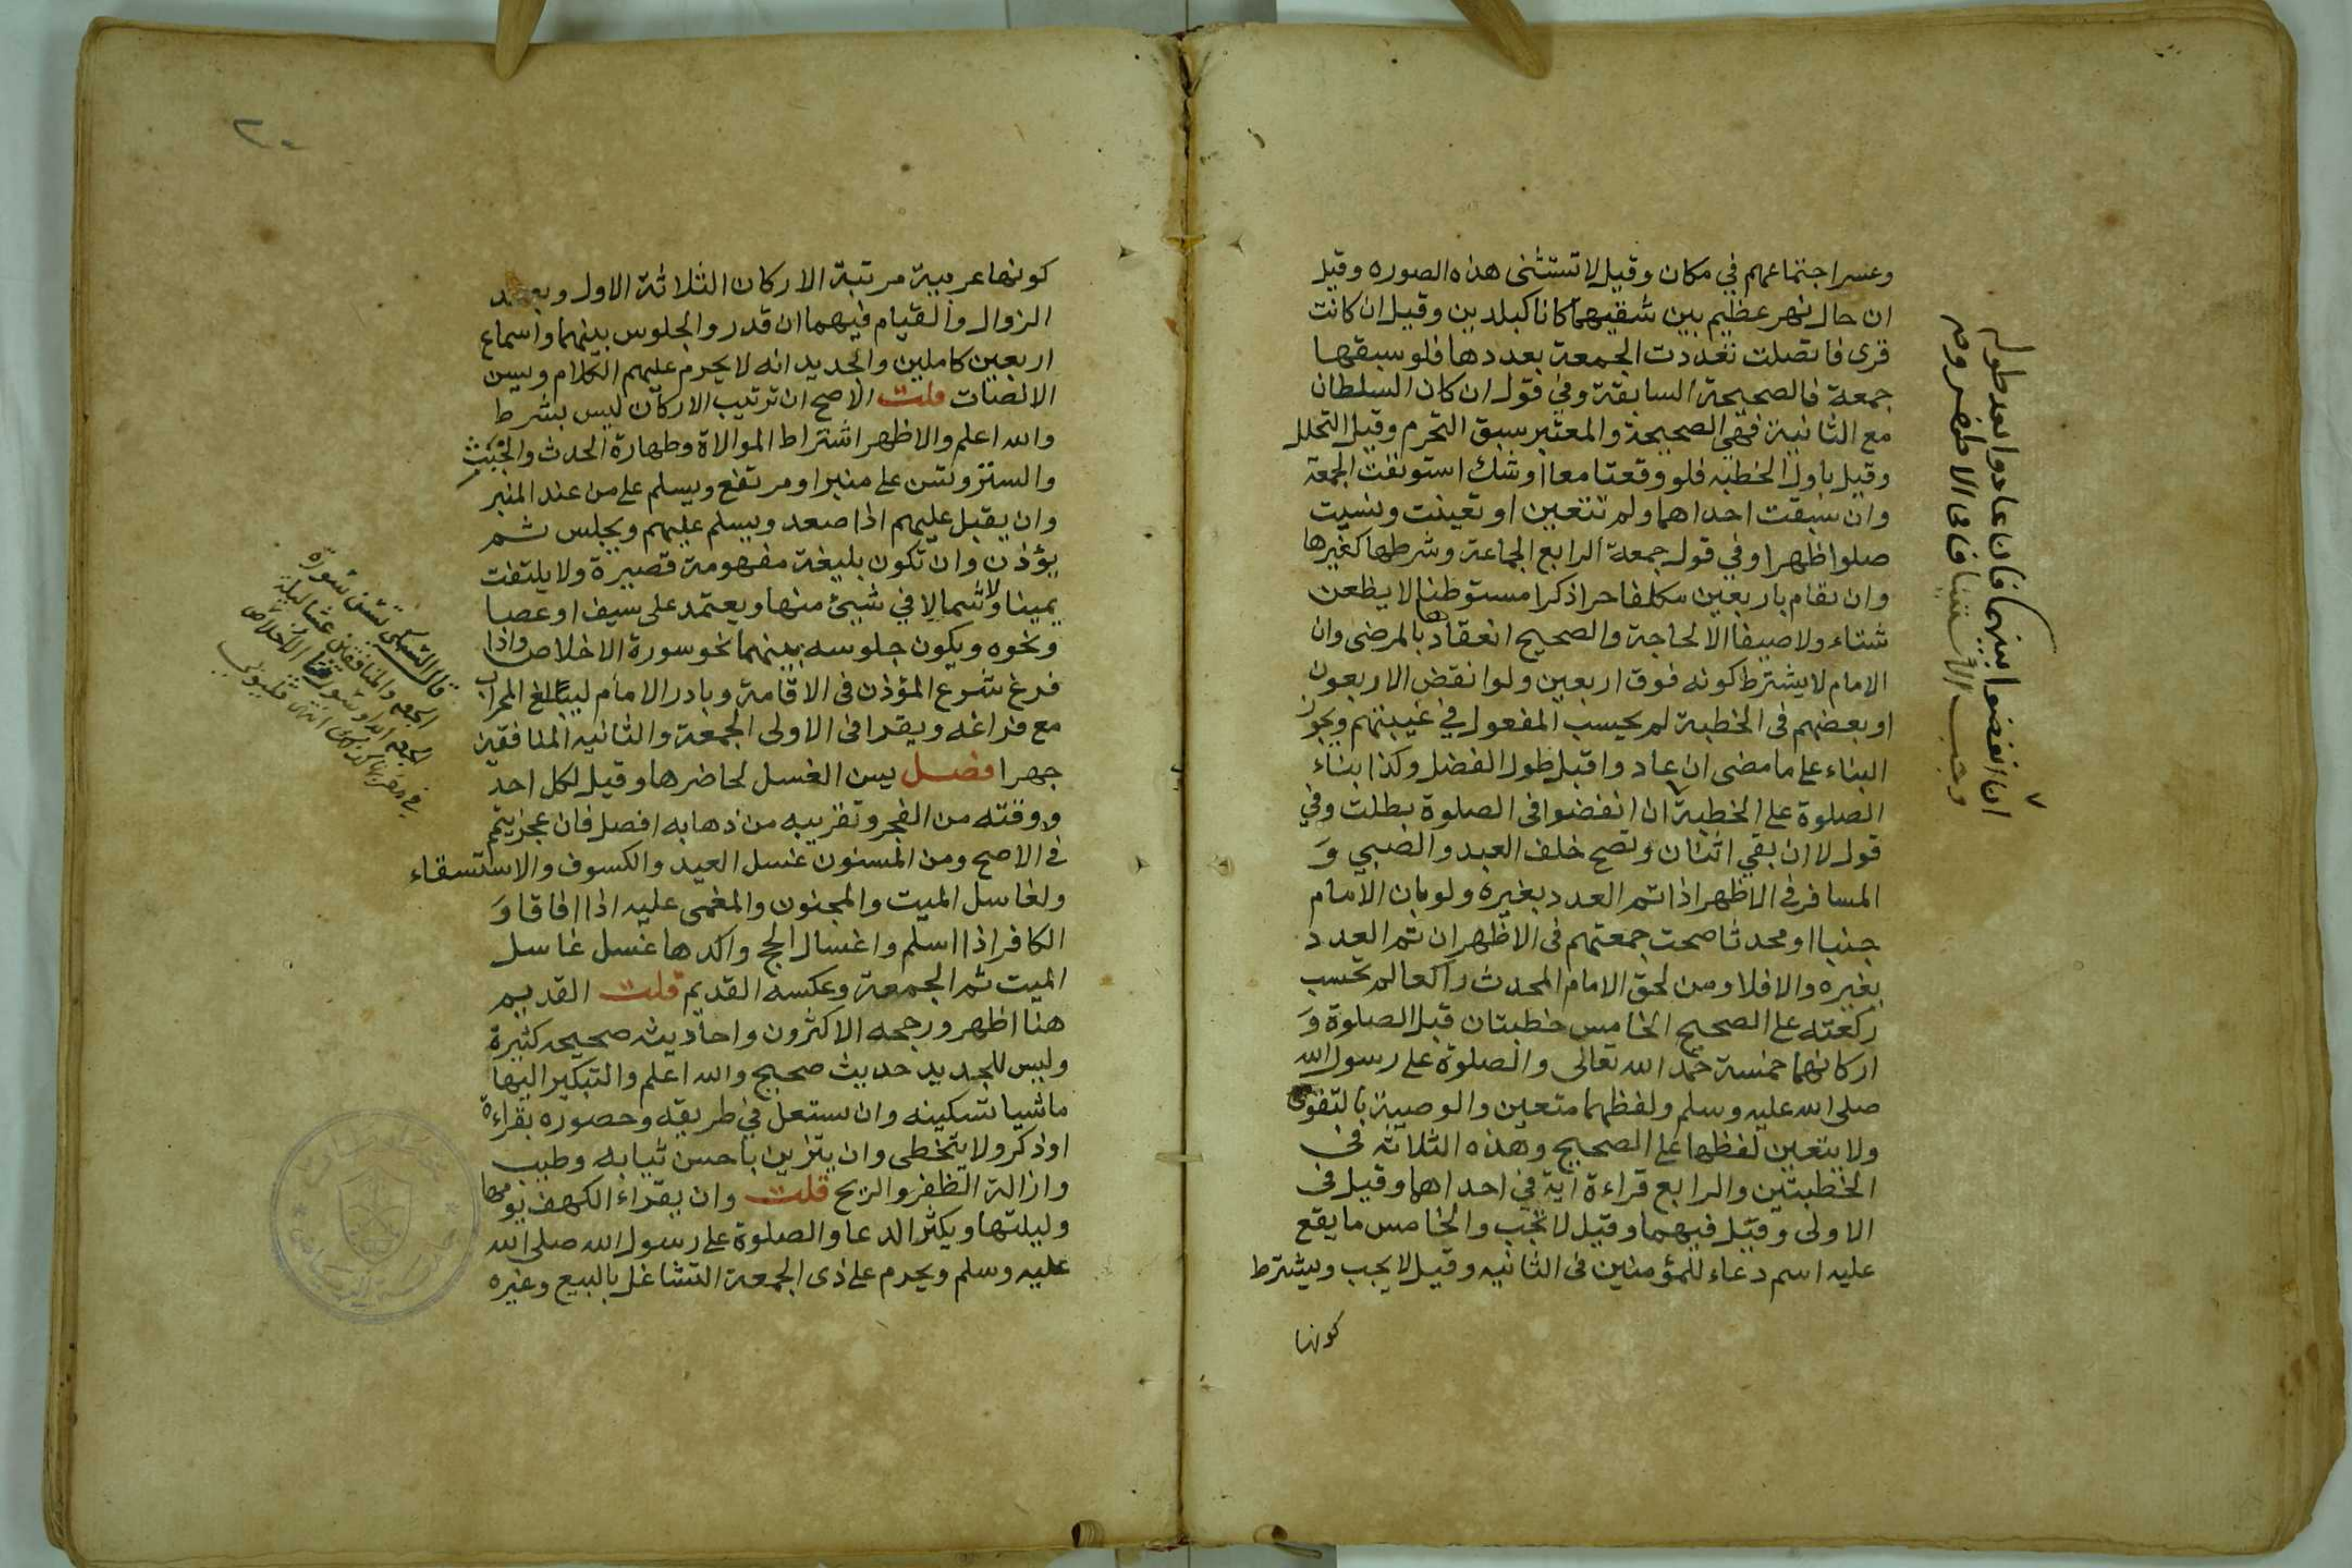 وعسر اجتماعهم في مكان وقيل لا تستثنى هذه الصوره وقيل
ان حال نهر عظيم بين شقيهما كانا كبلدين وقيل ان كانت
قرى فاتصلت تعددت الجمعة بعددها فلو سبقها
جمعة فالصحيحة السابقة وفي قول ان كان السلطان
مع الثانية فهي الصحيحة والمعتبر سبق التحرم وقيل التحلل
وقيل باول الخطبه فلو وقعتا معا او شك استونفت الجمعة
وان سبقت احداهما ولم تتعين او تعينت ونسيت
صلوا ظهرا وفي قول جمعة الرابع الجماعة وشرطها كغيرها
وان تقام باربعين مكلفا حرا ذكرا مستوطنا لا يظعن
شتاء ولا صيفا الا لحاجة والصحيح انعقادها بالمرضى وان
الامام لا يشترط كونه فوق اربعين ولو انفض الاربعون
او بعضهم في الخطبة لم يحسب المفعول في غيبتهم ويجوز
البناء على ما مضى ان عادوا قبل طول الفصل وكذا بناء
الصلوة على الخطبة ان انفضوا في الصلوة بطلت وفي
قول لا ان بقي اثنان وتصح خلف العبد والصبي و
المسافر في الاظهر اذا تم العدد بغيره ولو بان الامام
جنبا او محدثا صحت جمعتهم في الاظهر ان تم العدد
بغيره والا فلا ومن لحق الامام المحدث راكعا لم تحسب
ركعته على الصحيح الخامس خطبتان قبل الصلوة و
اركانهما خمسة حمد الله تعالى والصلوة على رسول الله
صلى الله عليه وسلم ولفظهما متعين والوصية بالتقوى
ولا يتعين لفظها على الصحيح وهذه الثلاثة في
الخطبتين والرابع قراءة آية في احداهما وقيل في
الاولى وقيل فيهما وقيل لا تجب والخامس ما يقع
عليه اسم دعاء للمؤمنين في الثانيه وقيل لا يجب ويشترط
كونها
ان انفضوا بينهما فان عادوا بعد طوله
وجب الاستيناف في الاظهر
كونها عربية مرتبة الاركان الثلاثة الاول وبعد
الزوال والقيام فيهما ان قدر والجلوس بينهما واسماع
اربعين كاملين والجديد انه لا يحرم عليهم الكلام ويسن
الانصات قلت الاصح ان ترتيب الاركان ليس بشرط
والله اعلم والاظهر اشتراط الموالاة وطهارة الحدث والخبث
والستر وتسن على منبر او مرتفع ويسلم على من عند المنبر
وان يقبل عليهم اذا صعد ويسلم عليهم ويجلس ثم
يؤذن وان تكون بليغة مفهومة قصيرة ولا يلتفت
يمينا ولا شمالا في شيئ منها ويعتمد على سيف او عصا
ونحوه ويكون جلوسه بينهما نحو سورة الاخلاص واذا
فرغ شرع المؤذن في الاقامة وبادر الامام ليبلغ المحراب
مع فراغه ويقرا في الاولى الجمعة والثانيه المنافقين
جهرا فصل يسن الغسل لحاضرها وقيل لكل احد
ووقته من الفجر وتقريبه من ذهابه افضل فان عجز يتمم
في الاصح ومن المسنون غسل العيد والكسوف والاستسقاء
ولغاسل الميت والمجنون والمغمى عليه اذا افاقا و
الكافر اذا اسلم واغسال الحج واكدها غسل غاسل
الميت ثم الجمعة وعكسه القديم قلت القديم
هنا اظهر ورجحه الاكثرون واحاديثه صحيحه كثيرة
وليس للجديد حديث صحيح والله اعلم والتبكير اليها
ماشيا بسكينه وان يستعل في طريقه وحضوره بقراءة
او ذكر ولا يتخطى وان يتزين باحسن ثيابه وطيب
وازالة الظفر والريح قلت وان يقراء الكهف يومها
وليلتها ويكثر الدعا والصلوة على رسول الله صلى الله
عليه وسلم ويحرم على ذي الجمعة التشاغل بالبيع وغيره
قال السبكي تسن سورة
الجمعه والمنافقين عشا ليلة